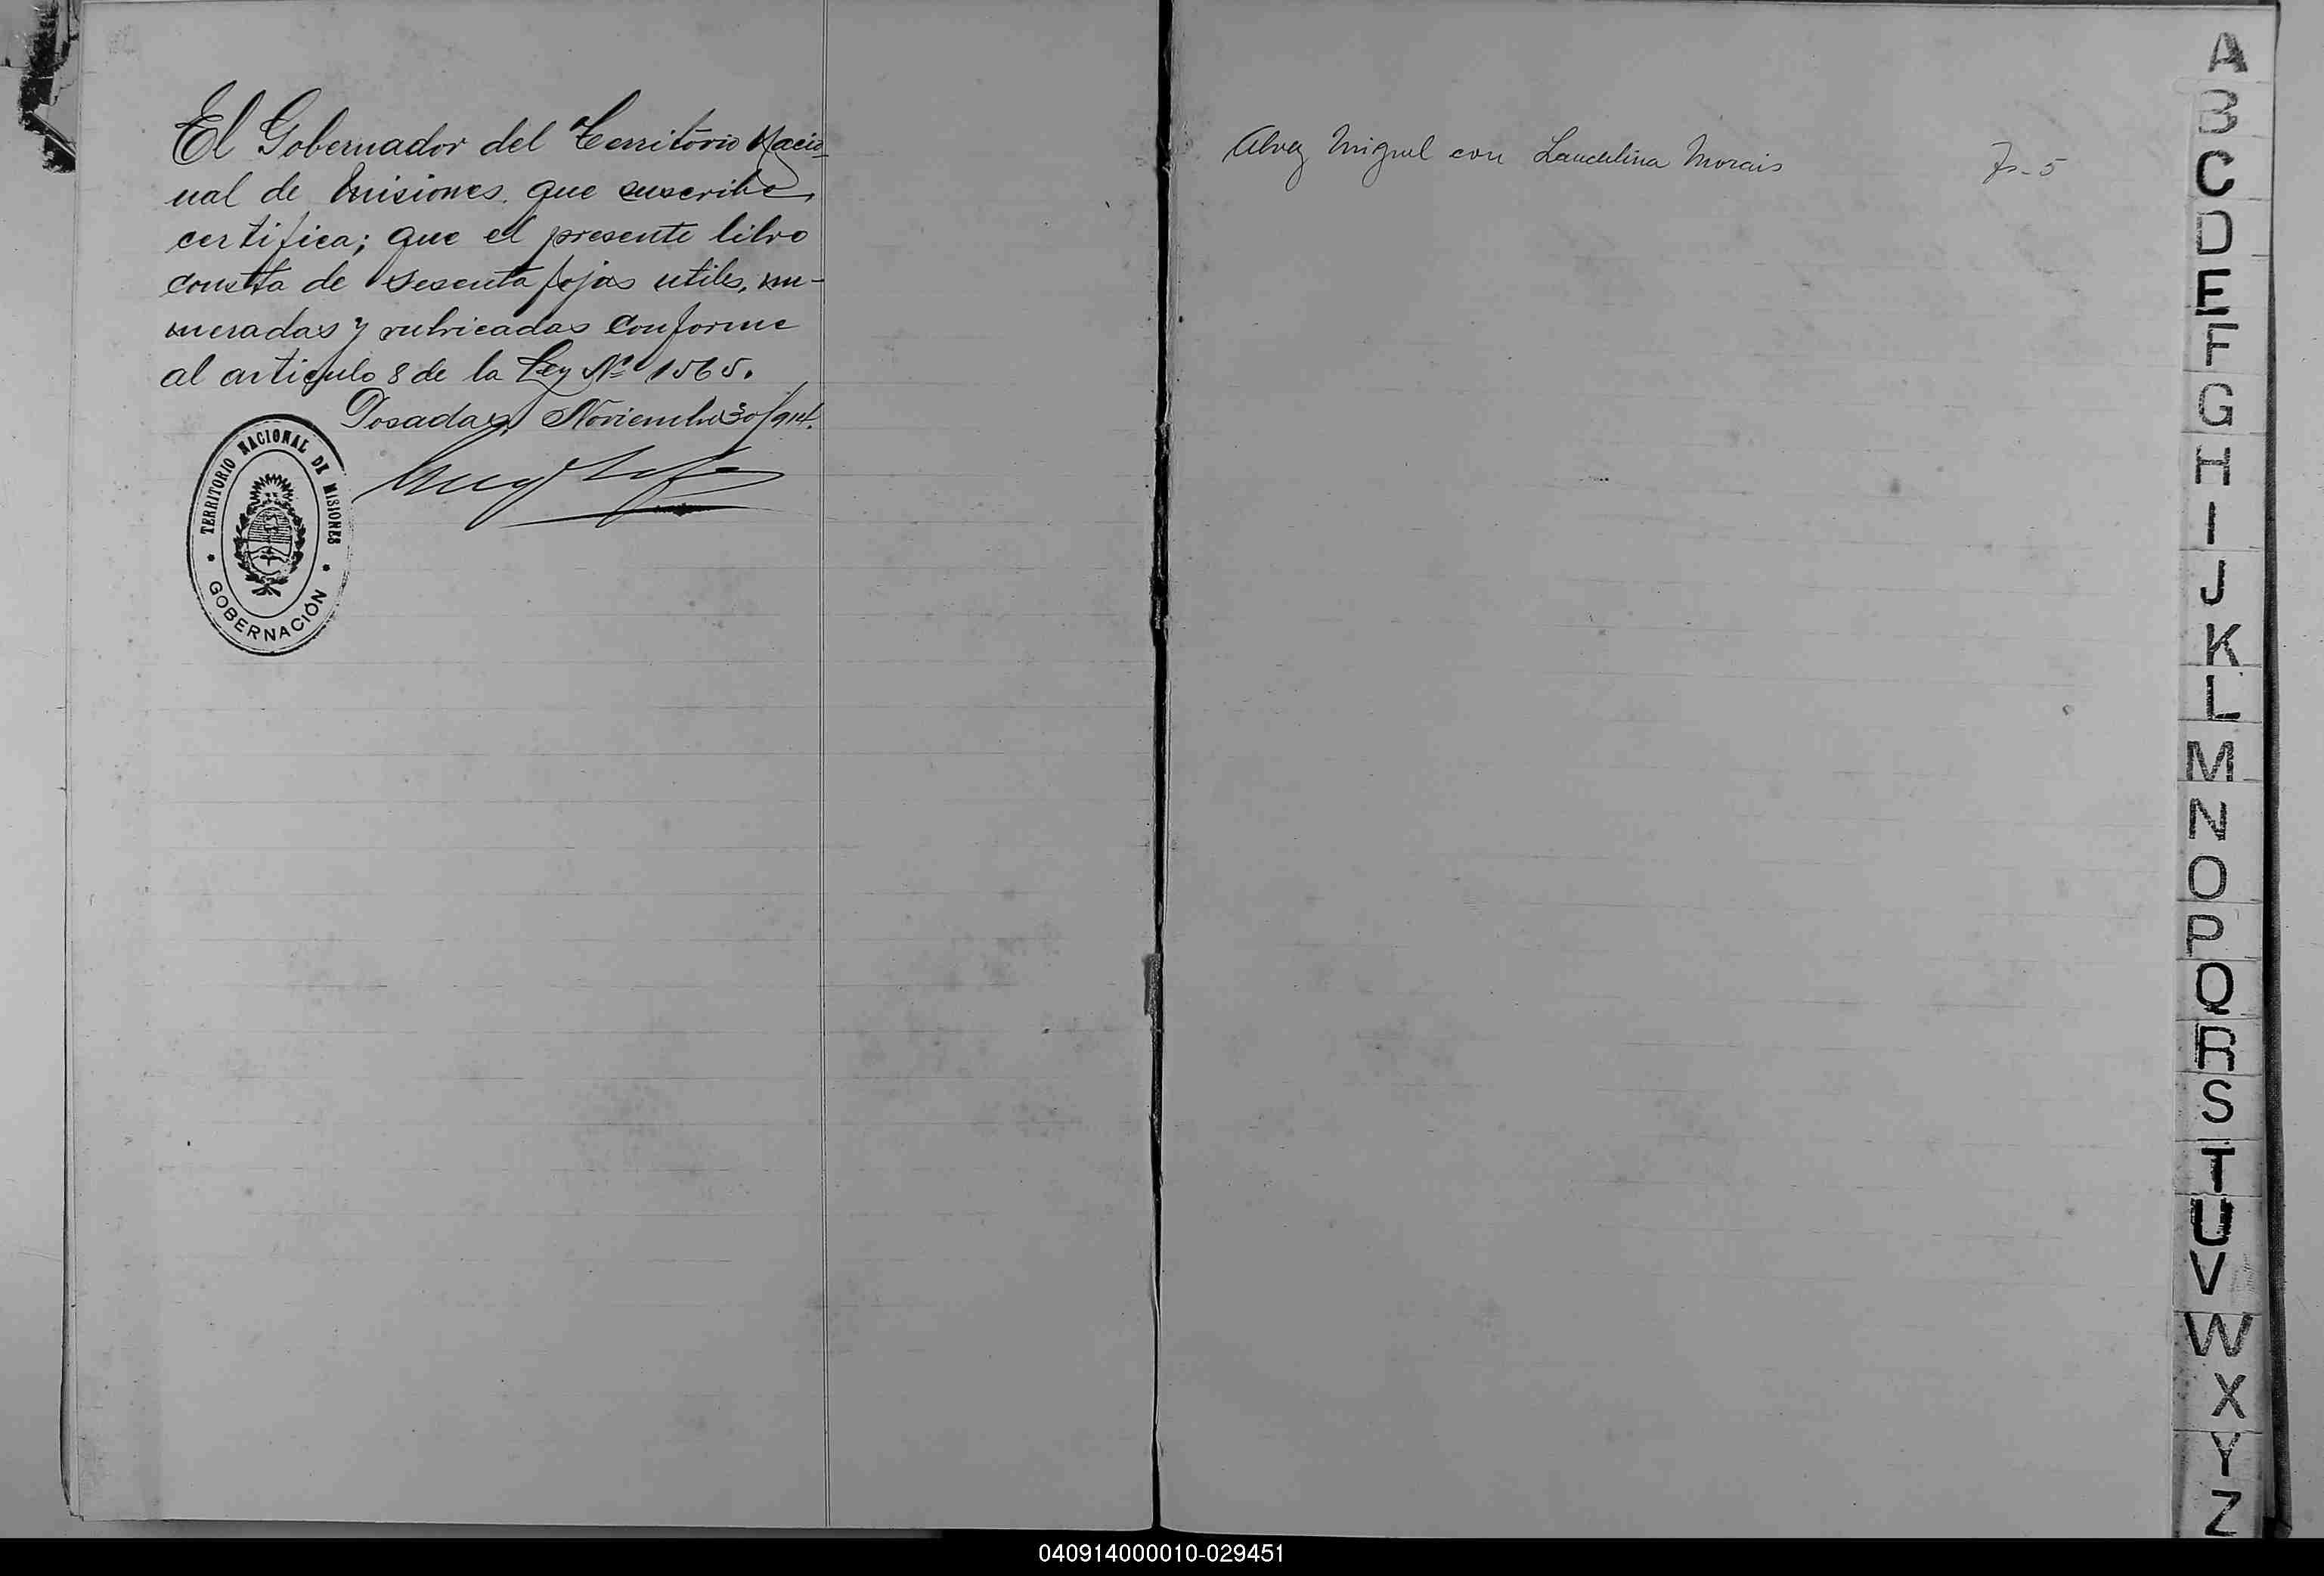 El Gobernador del Territorio Nacio-
nal de Misiones. que suscribe,
certifica; que el presente libro
consta de sesenta fojas utiles, nu-
meradas y rubricadas conforme
al articulo 8 de la Ley Nº 1565.
Posadas, Noviembre 30/914.
TERRITORIO NACIONAL DE MISIONES
GOBERNACIÓN
Alvez Miguel con Laudelina Morais Fs-5
A
B
C
D
E
F
G
H
I
J
K
L
M
N
O
P
Q
R
S
T
U
V
W
X
Y
Z
040914000010-029451